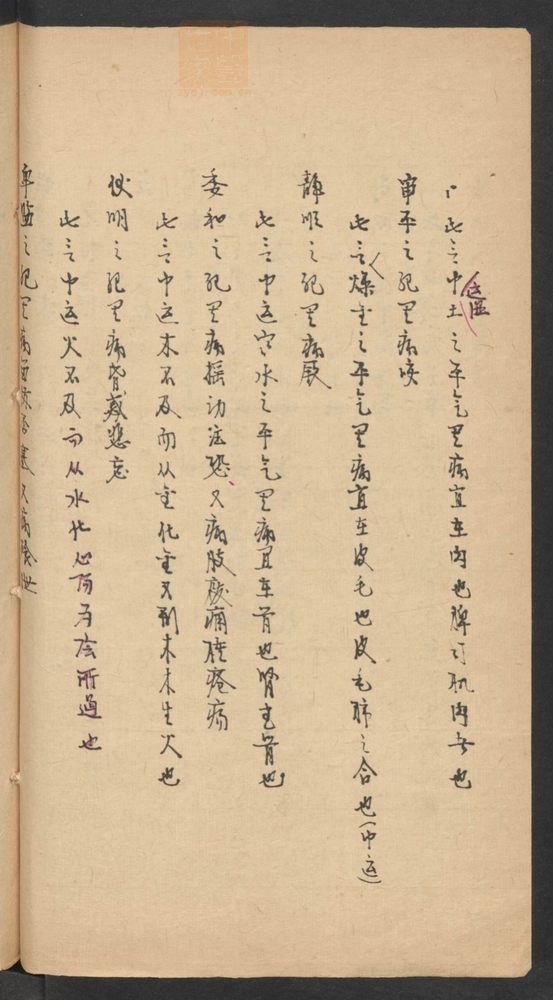 此言中土之平气里病宜在肉也脾司肌肉故也
運
審平之纪里病咳
此言燥金之平气里病宜在皮毛也皮毛肺之合也(中运
静顺之纪里病厥
此言中运寒水之平气里病宜在骨也肾主骨也
委和之纪里病摇动注恐又病肢废痈肿疮疡
此言中运木不及而从金化金又刑木木生火也
伏明之纪里病昏惑悲忘
此言中运火不及而从水化心阳为阴所遏也
卑监之纪里病留满否塞又病飧泄